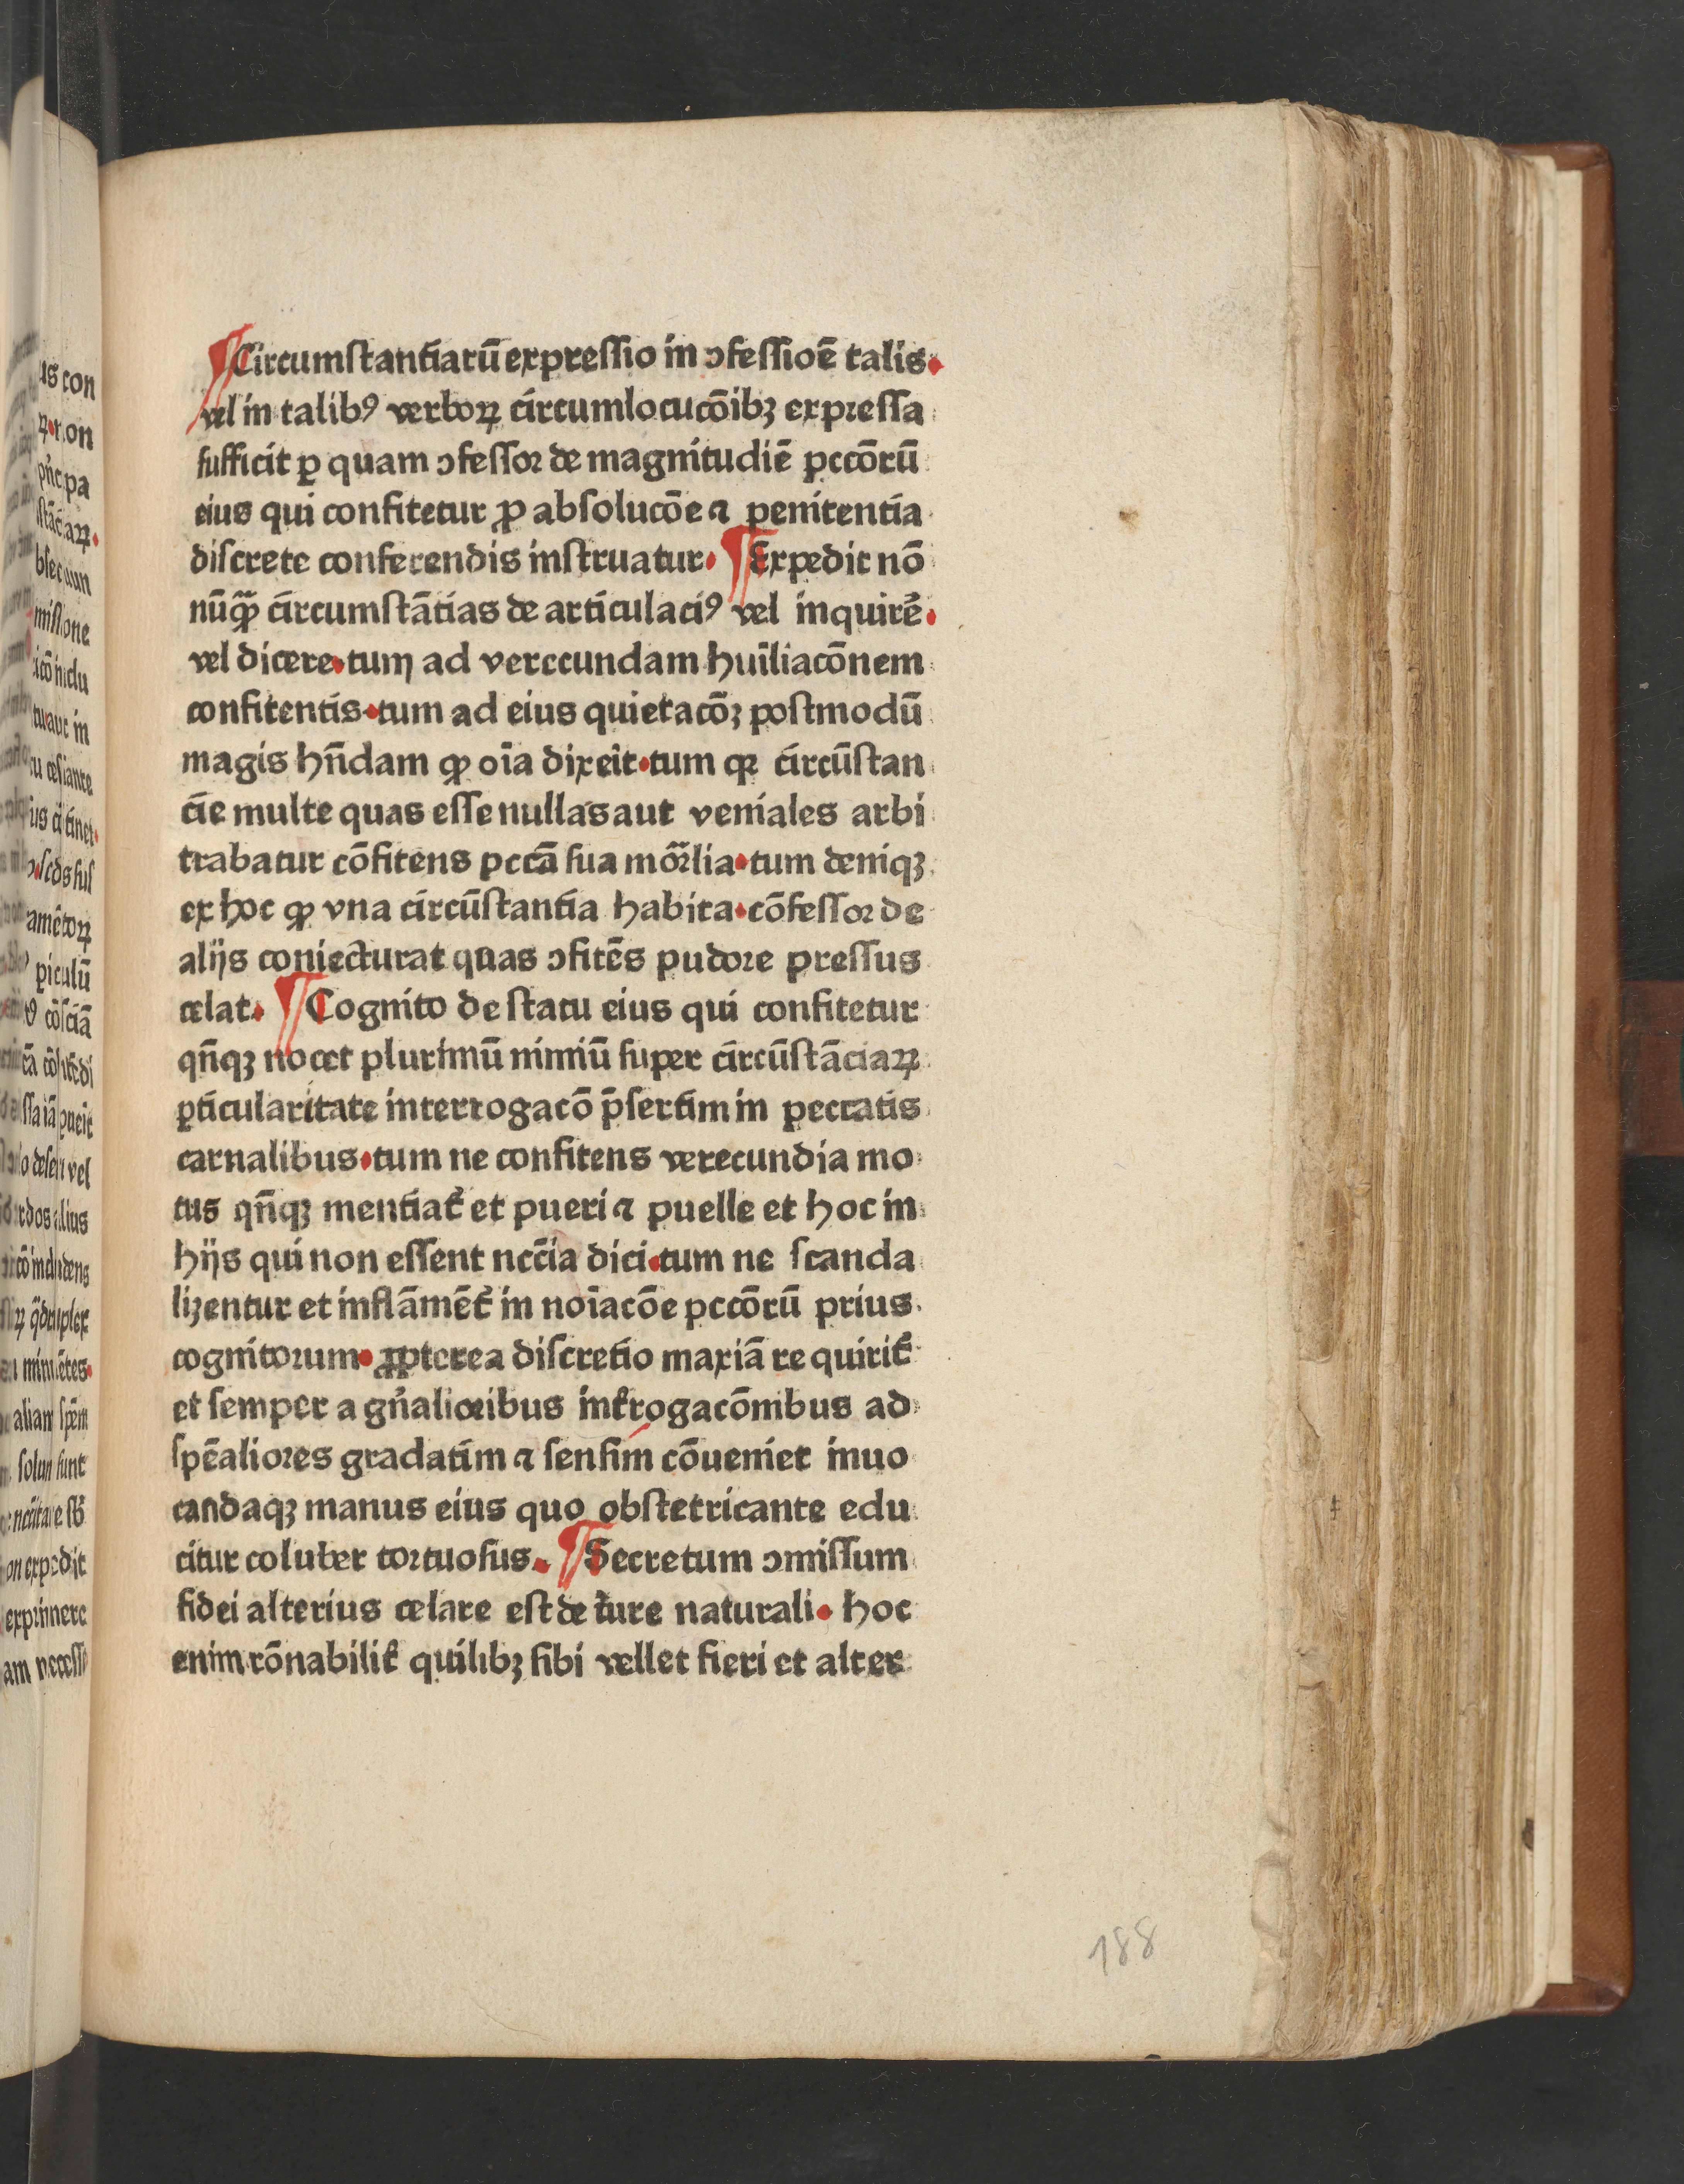 ¶ Circumſtantiarū expreſſio in ɔfeſſioē talis.
vel in talibꝰ verboꝝ circumlocucōibꝫ expreſſa
ſufficit ꝑ quam ɔfeſſor de magnitudīē pccōrū
eius qui confitetur ꝓ abſolucōe ⁊ penitentia
diſcrete conferendis inſtruatur. ¶ Expedit nō
nūq̄ꝫ circumſtātias de articulaciꝰ vel inquirē.
vel dicere.tum ad verecundam hūiliacōnem
confitentis.tum ad eius quietacōꝫ poſtmodū
magis hn̄dam ꝙ oīa dixeit.tum qꝛ circūſtan
cie multe quas eſſe nullas aut veniales arbi
trabatur cōfitens pccā ſua mōrlia.tum deniqꝫ
ex hoc ꝙ vna circūſtantia habita.cōfeſſor de
alijs coniecturat quas ɔfitēs pudore preſſus
celat. ¶ Cognito de ſtatu eius qui confitetur
qn̄qꝫ nocet plurimū nimiū ſuper circūſtāciaꝝ
ꝑticularitate interrogacō p̄ſertim in peccatis
carnalibus.tum ne confitens verecundia mo
tus qn̄qꝫ mentiat᷑ et pueri ⁊ puelle et hoc in
hijs qui non eſſent nccīa dici.tum ne ſcanda
lizentur et inflāmēt᷑ in noīacōe pccōrū prius
cognitorum. ꝓpterea diſcretio maxiā requirit᷑
et ſemper a gn̄alioribus int᷑rogacōnibus ad
ſpēaliores gradatim ⁊ ſenſim cōueniet inuo
candaqꝫ manus eius quo obſtetricante edu
citur coluber tortuoſus. ¶ Secretum ɔmiſſum
fidei alterius celare eſt de iure naturali. hoc
enim rōnabilit᷑ quilibꝫ ſibi vellet fieri et alter
188